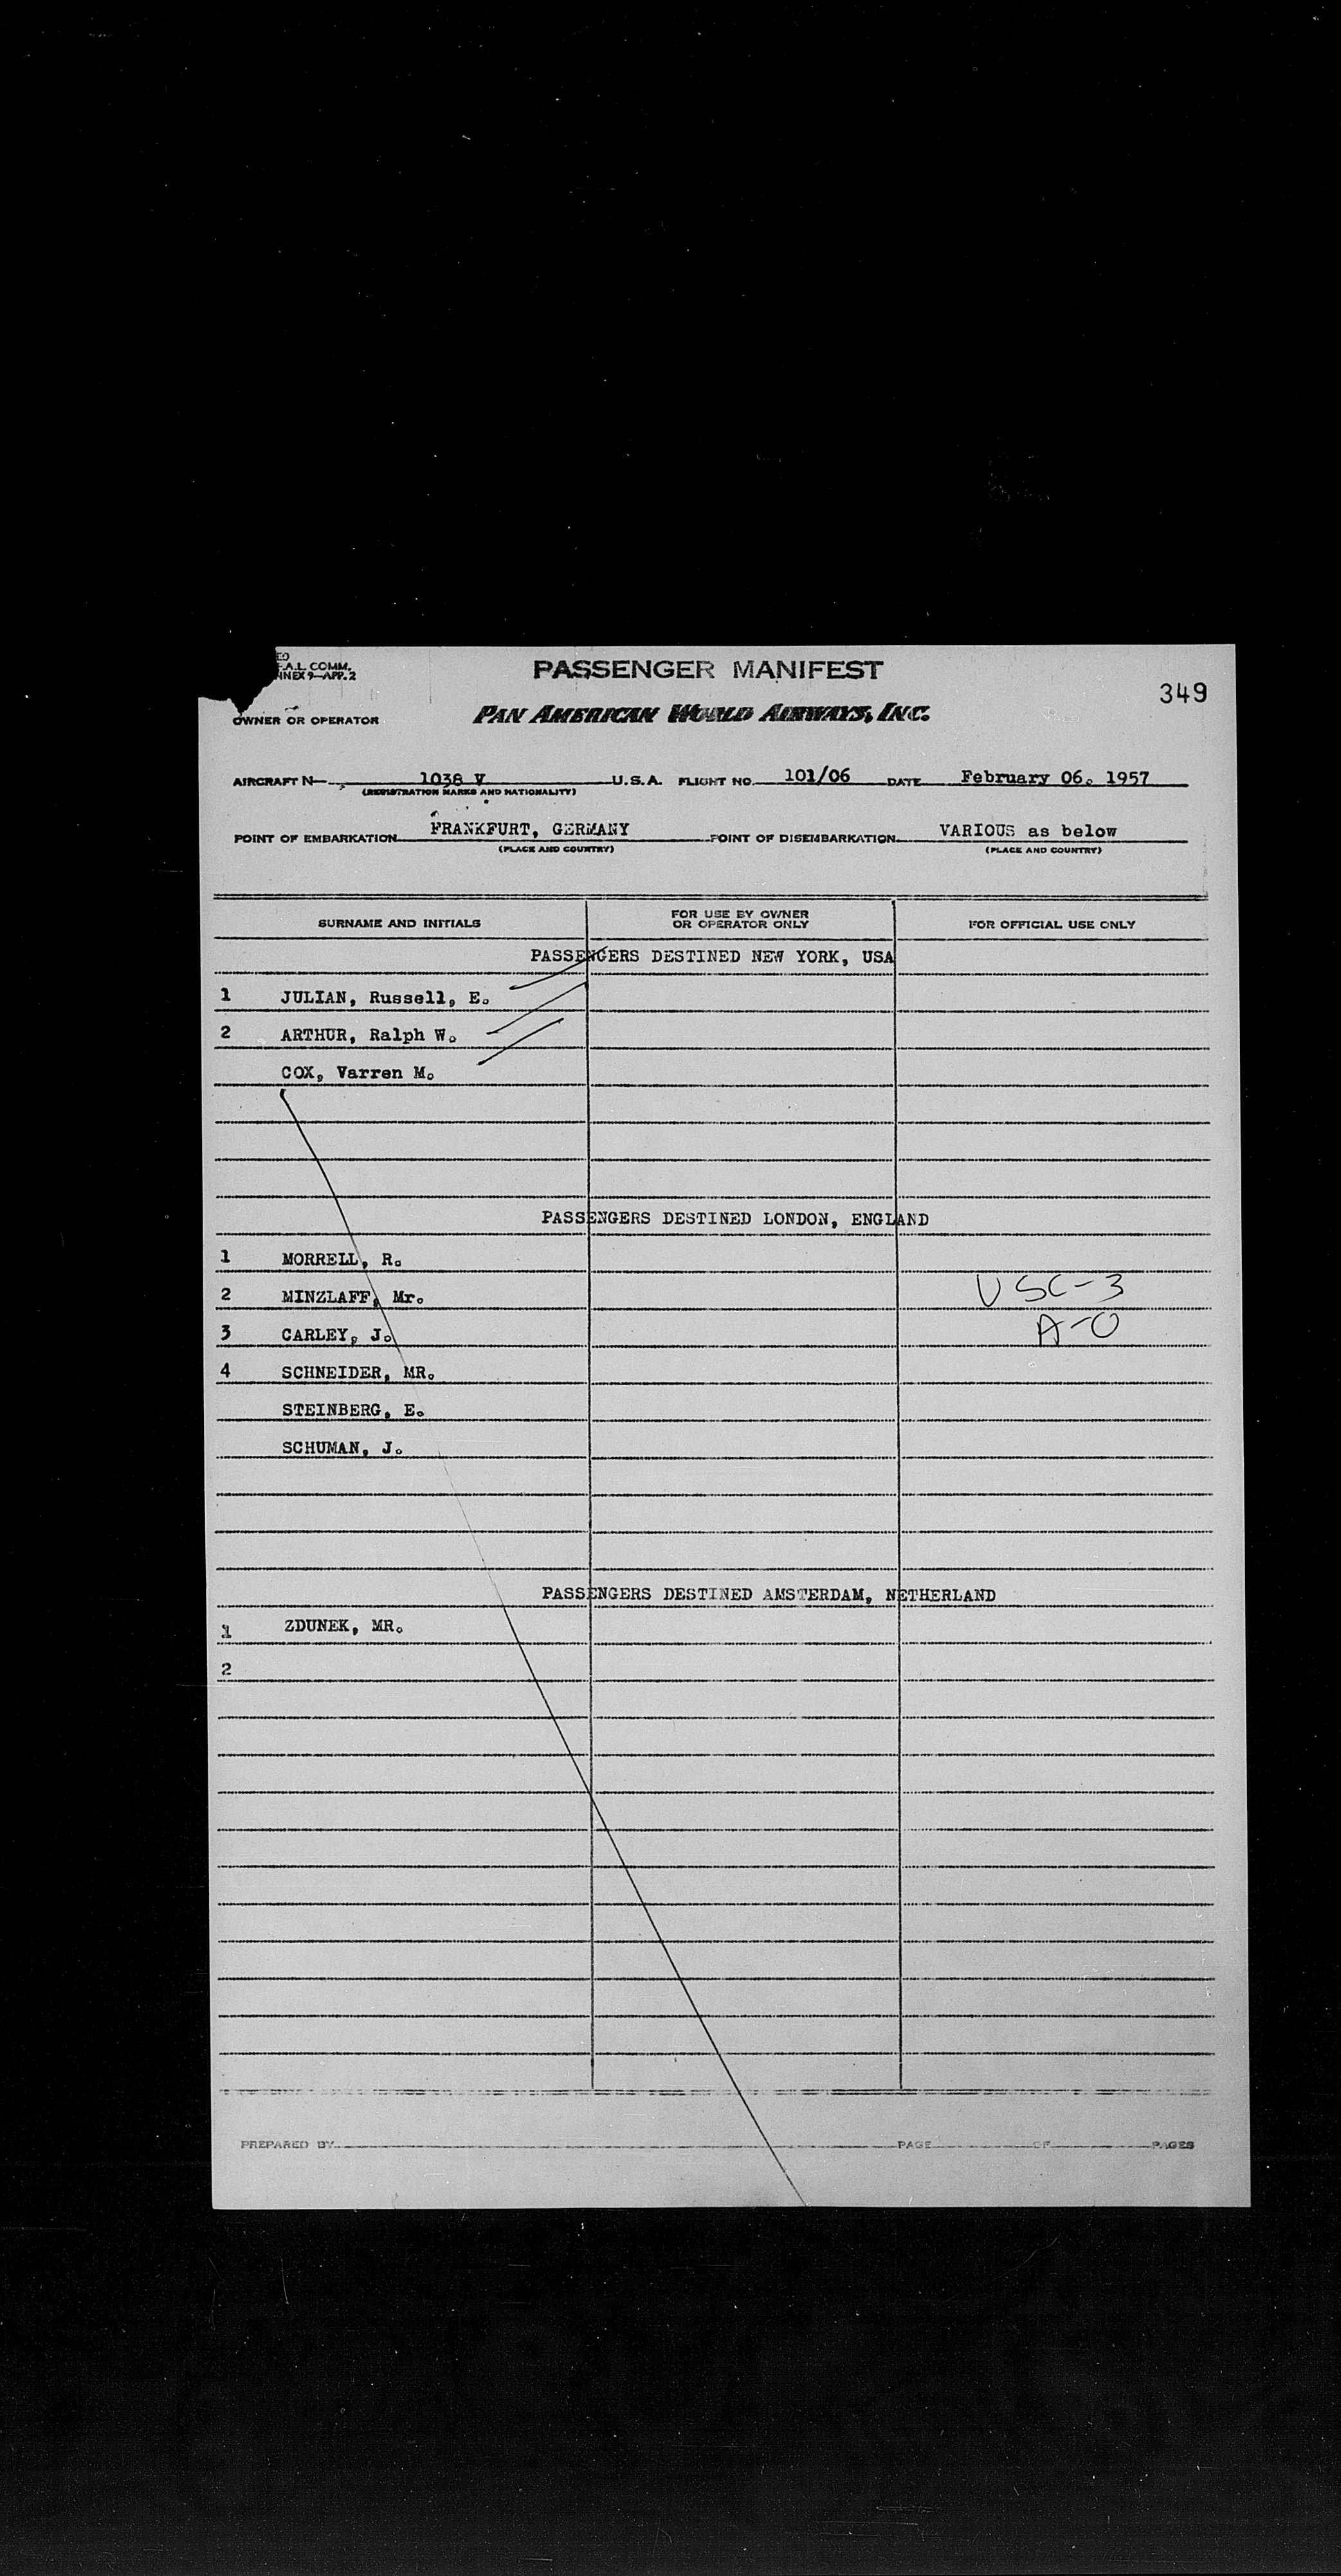 F.A.L. COMM.
ANNEX 9—APP. 2
PASSENGER MANIFEST
349
OWNER OR OPERATOR PAN AMERICAN WORLD AIRWAYS, INC.
AIRCRAFT N— 1038 V U.S.A. FLIGHT NO. 101/06 DATE February 06. 1957
(REGISTRATION MARKS AND NATIONALITY)
POINT OF EMBARKATION FRANKFURT, GERMANY POINT OF DISEMBARKATION VARIOUS as below
(PLACE AND COUNTRY) (PLACE AND COUNTRY)
SURNAME AND INITIALS FOR USE BY OWNER OR OPERATOR ONLY FOR OFFICIAL USE ONLY
PASSENGERS DESTINED NEW YORK, USA
1 JULIAN, Russell, E.
2 ARTHUR, Ralph W.
COX, Varren M.
PASSENGERS DESTINED LONDON, ENGLAND
1 MORRELL, R.
2 MINZLAFF, Mr. USC-3
3 CARLEY, J. A-0
4 SCHNEIDER, MR.
STEINBERG, E.
SCHUMAN, J.
PASSENGERS DESTINED AMSTERDAM, NETHERLAND
1 ZDUNEK, MR.
2
PREPARED BY PAGE OF PAGES